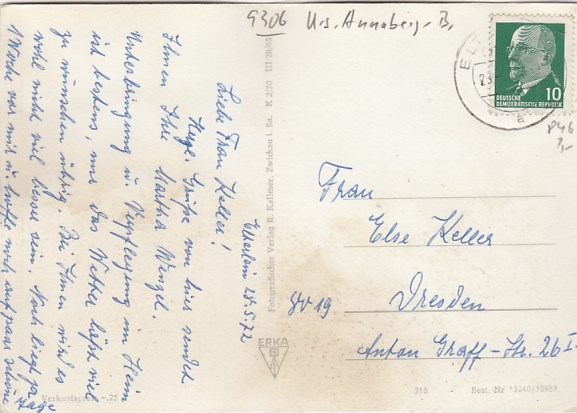 9306 Krs. Annaberg-B.
Elterlein 28.5.72
Liebe Frau Keller!
Herzl. Grüße von hier sendet
Ihnen Ihre Martha Wenzel.
Unterbringung u. Verpflegung im Heim
ist bestens, nur das Wetter läßt viel
zu wünschen übrig. Bei Ihnen wird es
wohl nicht viel besser sein. Noch liegt ja
1 Woche vor mir u. hoffe noch auf paar schöne
Tage
Verkaufspreis -.25
Fotografischer Verlag R. Kallmer, Zwickau i. Sa. K 2/70 III/29/55
ERKA
DEUTSCHE
DEMOKRATISCHE REPUBLIK
10
EL
a
846
Frau
Else Keller
8019 Dresden
Anton Graff-Str. 26 I
Best.-Nr